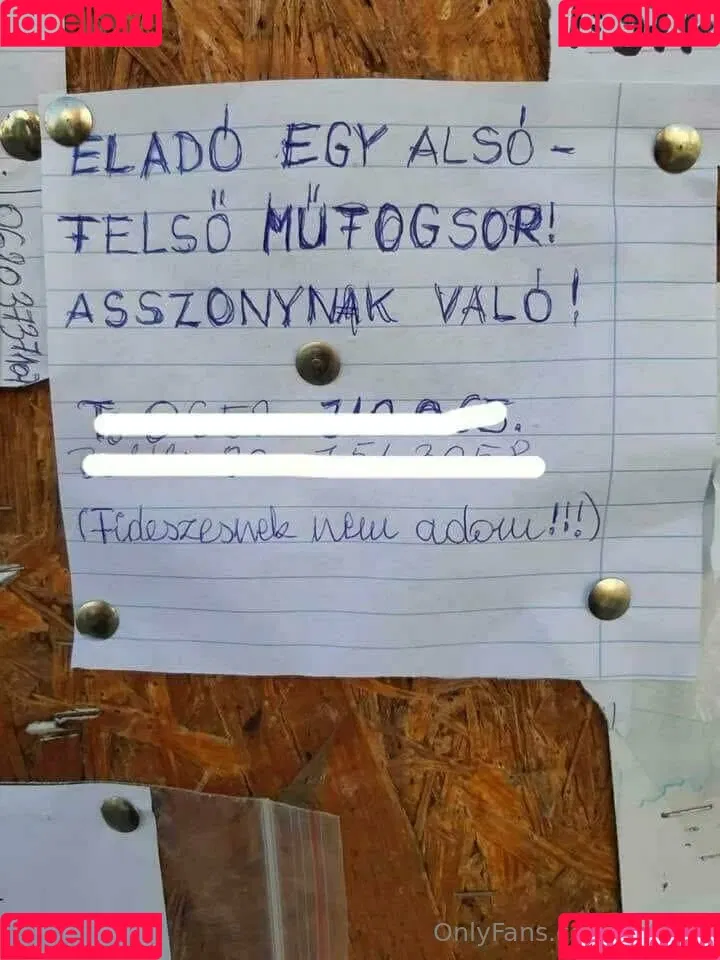 fapello.ru
fapello.ru
ELADÓ EGY ALSÓ-
FELSŐ MŰFOGSOR!
ASSZONYNAK VALÓ!
(Fideszesnek nem adom!!!)
fapello.ru
OnlyFans.
fapello.ru